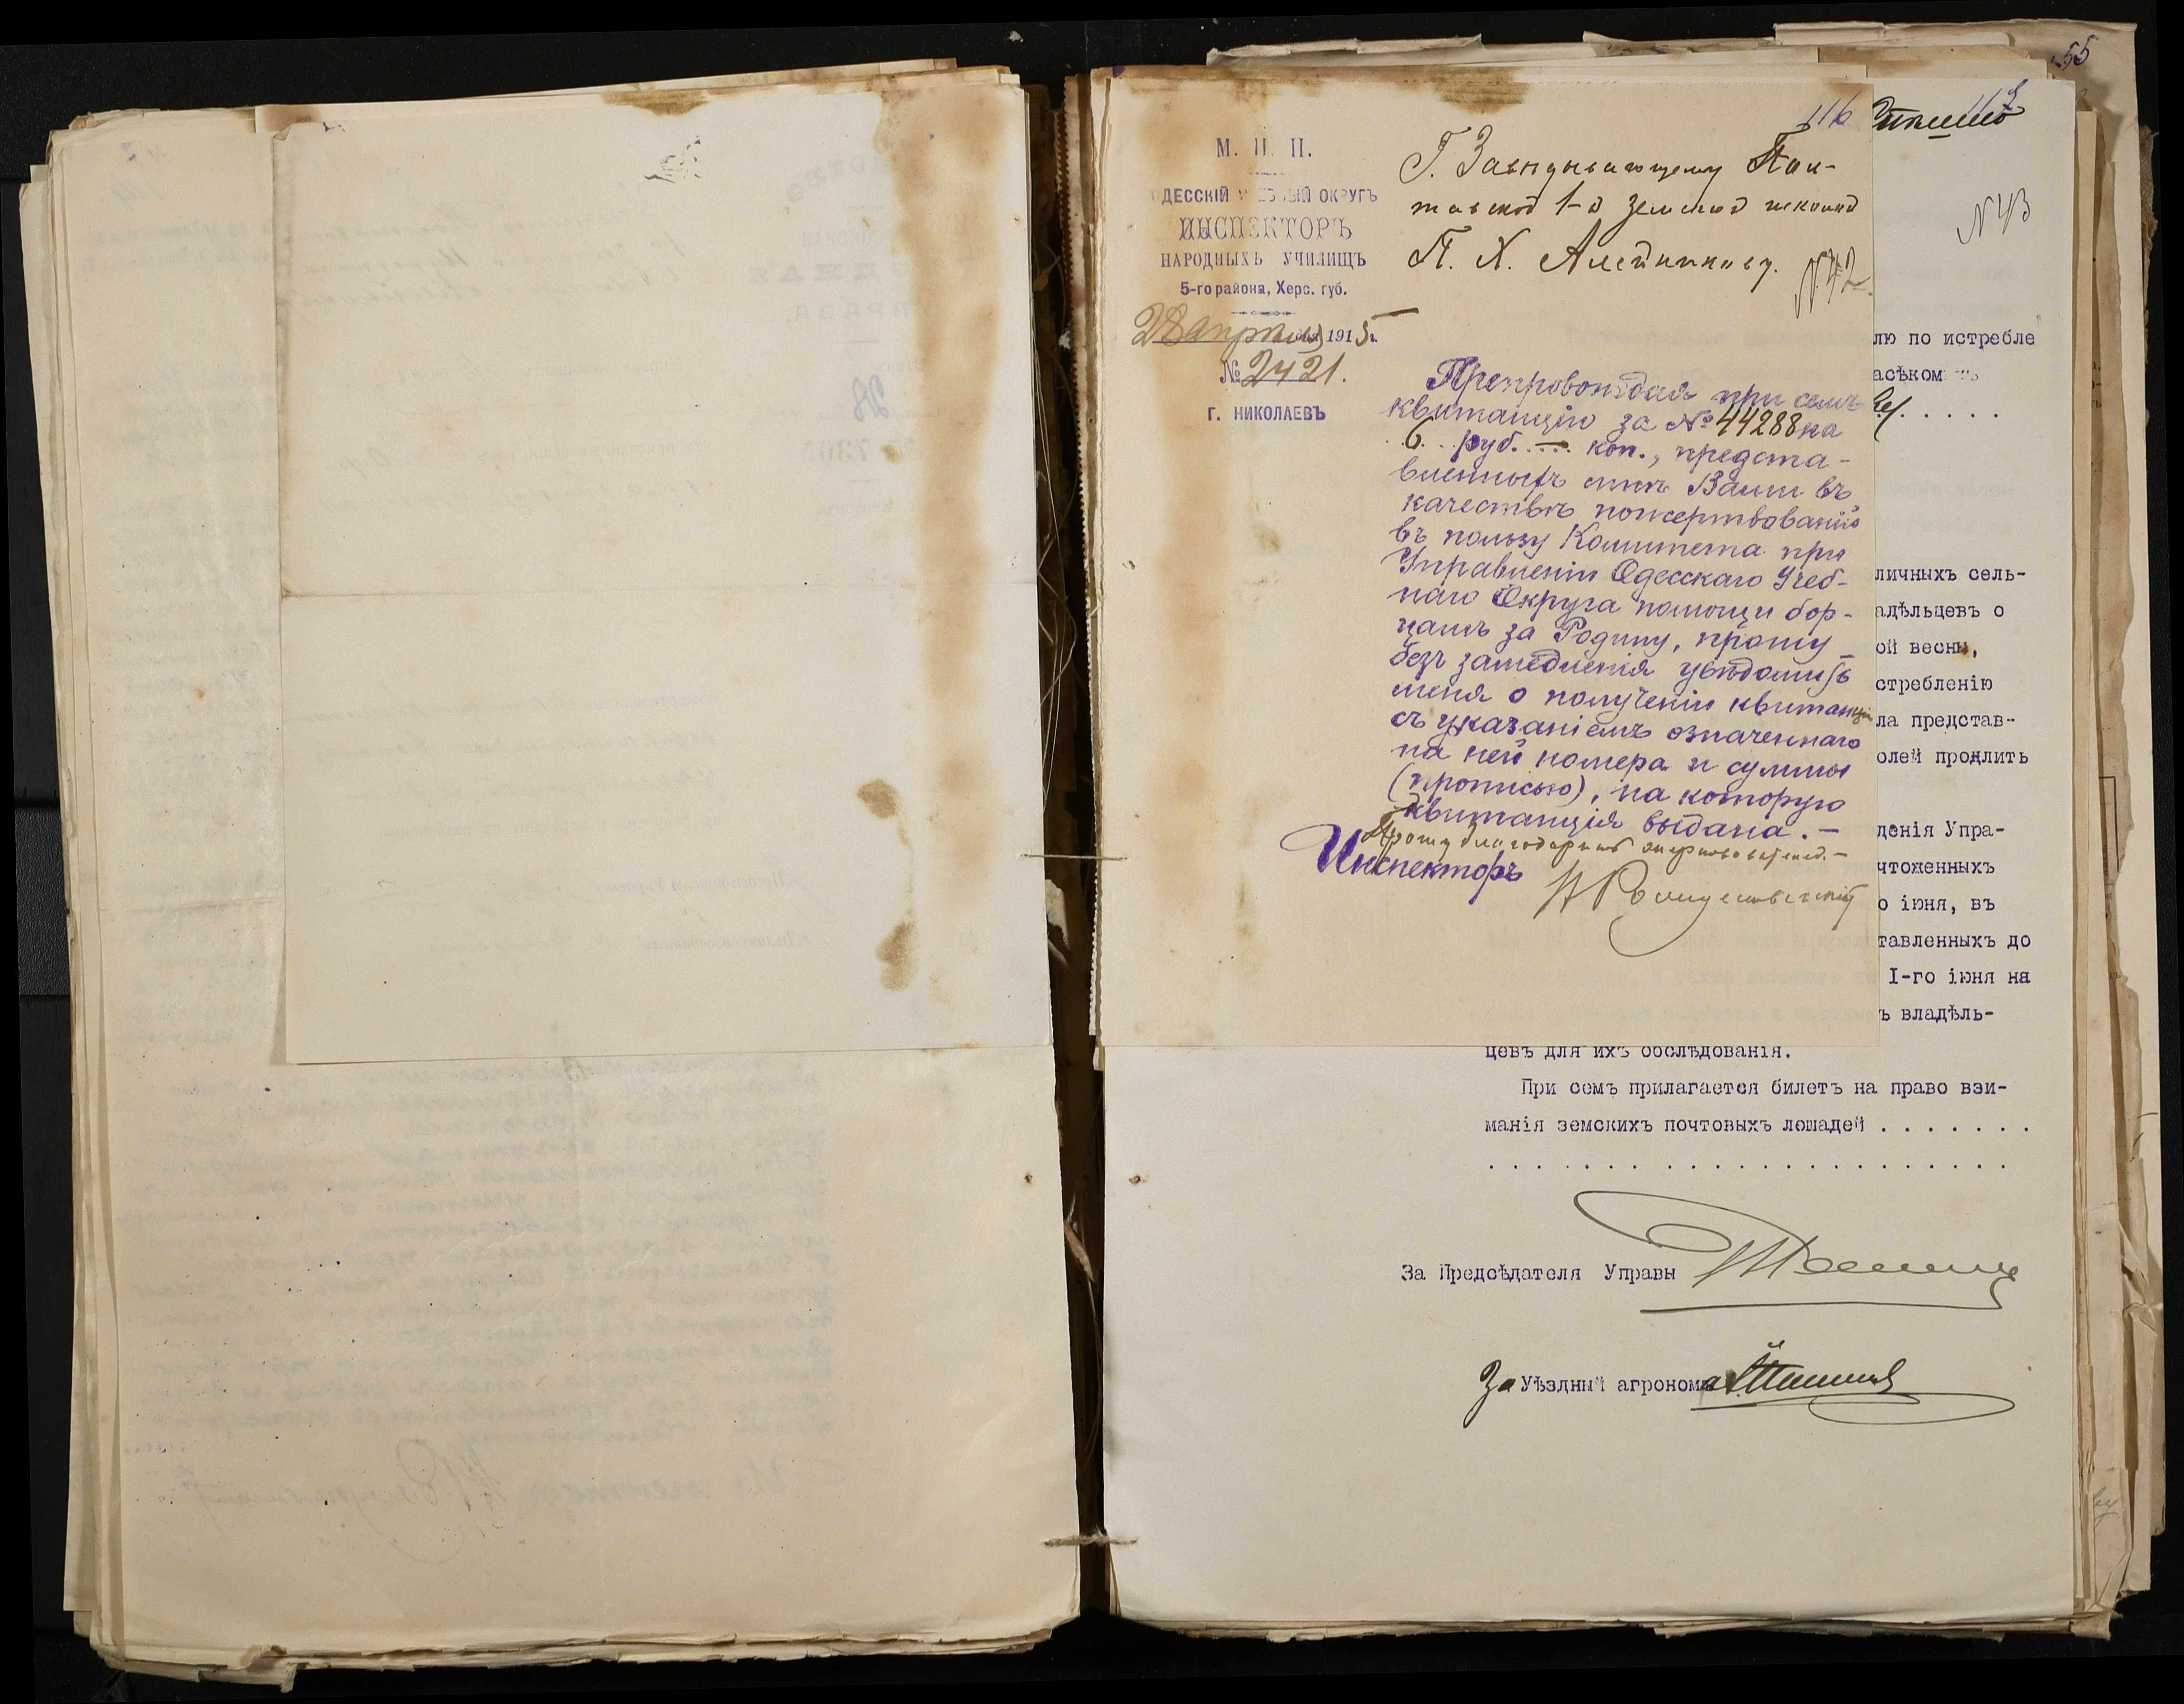 55
116
М. Н. П.
ОДЕССКІЙ УЧЕБНЫЙ ОКРУГЪ
ИНСПЕКТОРЪ
НАРОДНЫХЪ УЧИЛИЩЪ
5-го района, Херс. губ.
28 апрѣля дня 1915 г.
№ 2421.
Г. НИКОЛАЕВЪ
Г. Завѣдывающему Пол-
тавской 1-й земской школой
П. Х. Алейникову.
N 42
Препровождая при семъ
квитанцію за № 44288 на
6 руб. — коп., предста-
вленныхъ мнѣ Вами въ
качествѣ пожертвованій
въ пользу Комитета при
Управленіи Одесскаго Учеб-
наго Округа помощи бор-
цамъ за Родину, прошу
безъ замедленія увѣдомить
меня о полученіи квитанціи
съ указаніемъ означеннаго
на ней номера и суммы
(прописью), на которую
квитанція выдана. —
Прошу благодарить жертвователей. —
Инспекторъ
Н Рождественскій
N 43
лю по истребле
асѣком
личныхъ сель-
адѣльцевъ о
ой весны,
стребленію
ла представ-
олей продлить
денія Упра-
чтоженныхъ
о іюня, въ
тавленныхъ до
I-го іюня на
ъ владѣль-
цевъ для ихъ обслѣдованія.
При семъ прилагается билетъ на право взи-
манія земскихъ почтовыхъ лошадей . . . . . . .
. . . . . . . . . . . . . . . . . . . . . .
За Предсѣдателя Управы
За Уѣздный агрономъ